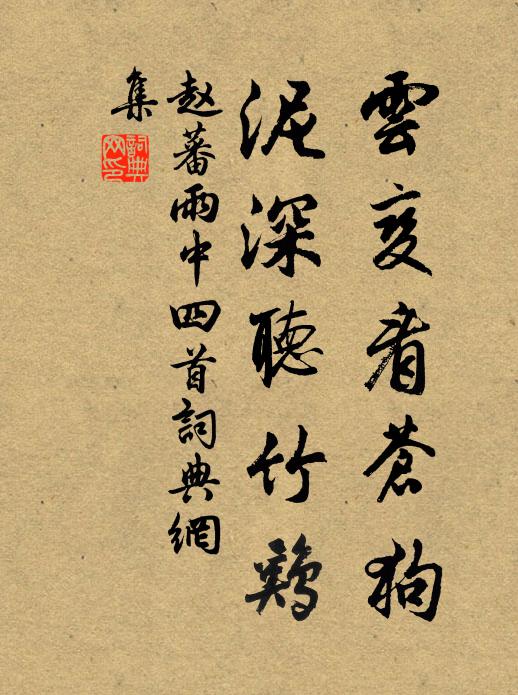 雲变看蒼狗
泥深聽竹鷄
赵蕃雨中四首詞典網
集
詞典
网印